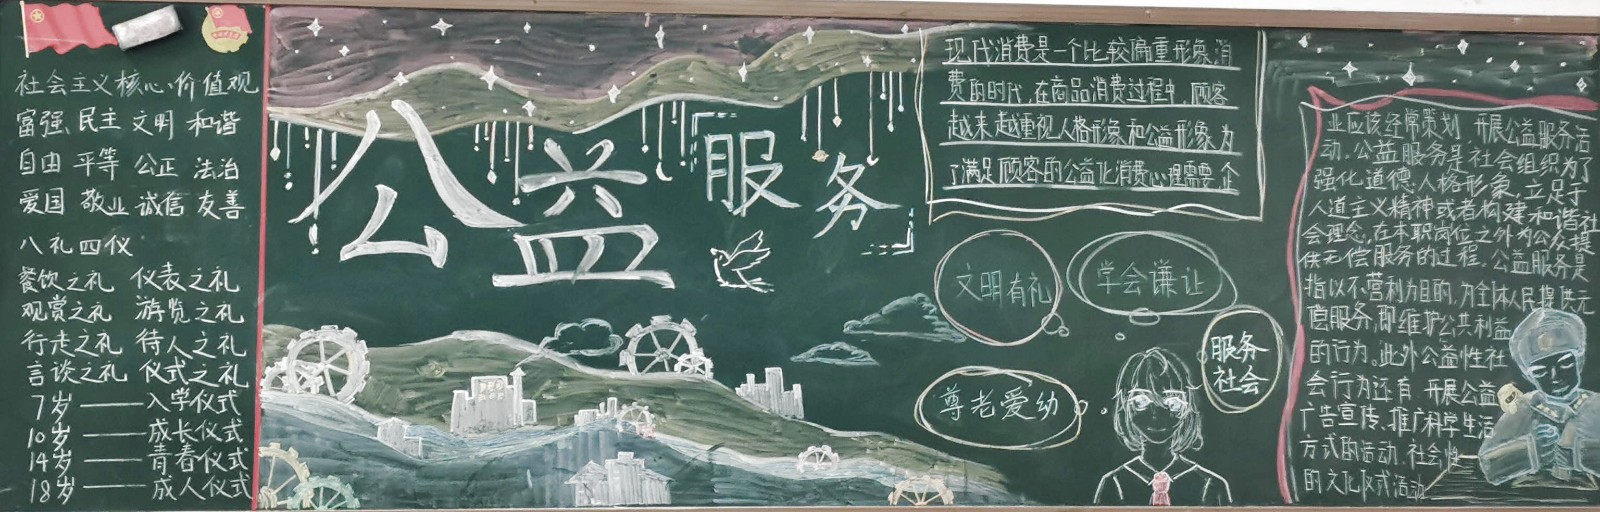 社会主义核心价值观
富强 民主 文明 和谐
自由 平等 公正 法治
爱国 敬业 诚信 友善
八礼四仪
餐饮之礼 仪表之礼
观赏之礼 游览之礼
行走之礼 待人之礼
言谈之礼 仪式之礼
7岁——入学仪式
10岁——成长仪式
14岁——青春仪式
18岁——成人仪式
公益服务
现代消费是一个比较偏重形象消
费的时代,在商品消费过程中,顾客
越来越重视人格形象和公益形象,为
了满足顾客的公益化消费心理需要,企
文明有礼
学会谦让
服务
社会
尊老爱幼
业应该经常策划 开展公益服务活
动.公益服务是社会组织为了
强化道德人格形象,立足于
人道主义精神或者构建和谐社
会理念,在本职岗位之外为公众提
供无偿服务的过程.公益服务是
指以不营利为目的,为全体人民提供无
偿服务,即维护公共利益
的行为.此外公益性社
会行为还有 开展公益
广告宣传、推广科学生活
方式的活动,社会性
的文化仪式活动